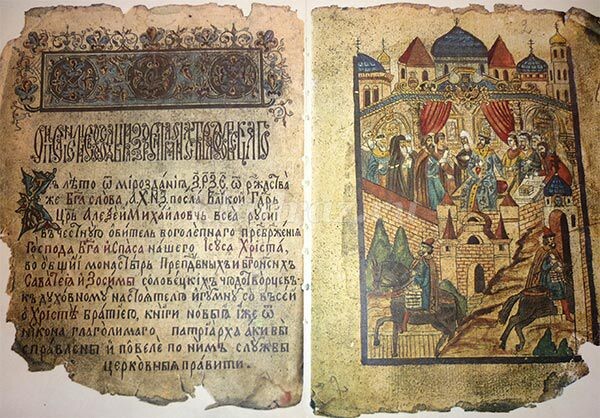 Въ лѣто ѿ мирозданїѧ ҂ЗРЗЕ ѿ рж҃ства
же Бг҃а слова, ҂АХНЗ посла великои Гдр҃ь
Цр҃ь Алеѯей Михайловчь всеѧ русїи
въ честную обитель воголепнаго преѡбрженїа
Господа Бг҃а и Спаса нашего Ісуса Хрїста,
во общїй монастырь Препдⷪбныхъ и бг҃оноснхъ
Саватїа й Зосимы соловецкїхъ чюдотворцевъ
къ духовному настоятелю игумну со всеєй
о Хрїстѣ братїею, книги новыѧ йже ѿ
никона глаголимаго патрїарха аки бы
справлены й повеле по нимъ службы
церковныѧ правити.
2